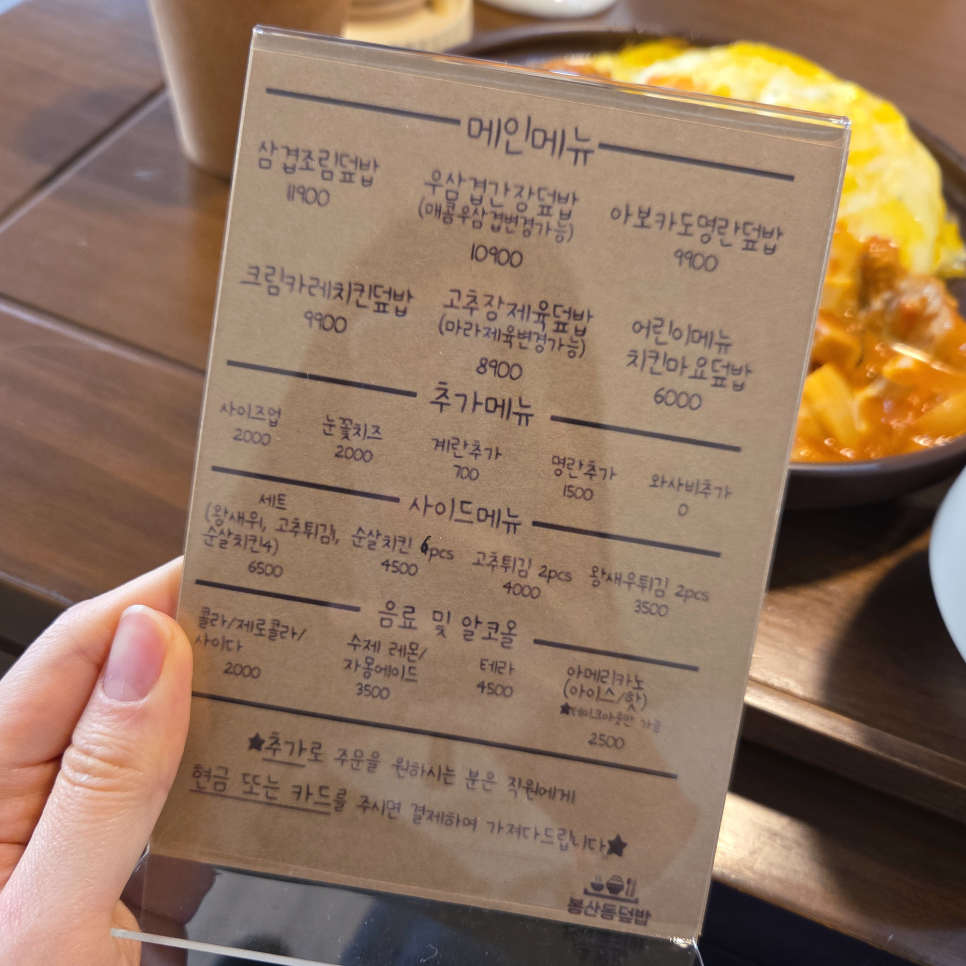 메인메뉴
삼겹조림덮밥
11900
우삼겹간장덮밥
(매콤우삼겹변경가능)
10900
아보카도명란덮밥
9900
크림카레치킨덮밥
9900
고추장제육덮밥
(마라제육변경가능)
8900
어린이메뉴
치킨마요덮밥
6000
추가메뉴
사이즈업
2000
눈꽃치즈
2000
계란추가
700
명란추가
1500
와사비추가
0
사이드메뉴
세트
(왕새우1, 고추튀김1,
순살치킨4)
6500
순살치킨 6pcs
4500
고추튀김 2pcs
4000
왕새우튀김 2pcs
3500
음료 및 알코올
콜라/제로콜라/
사이다
2000
수제 레몬/
자몽에이드
3500
테라
4500
아메리카노
(아이스/핫)
★테이크아웃만 가능
2500
★추가로 주문을 원하시는 분은 직원에게
현금 또는 카드를 주시면 결제하여 가져다드립니다★
봉산동덮밥